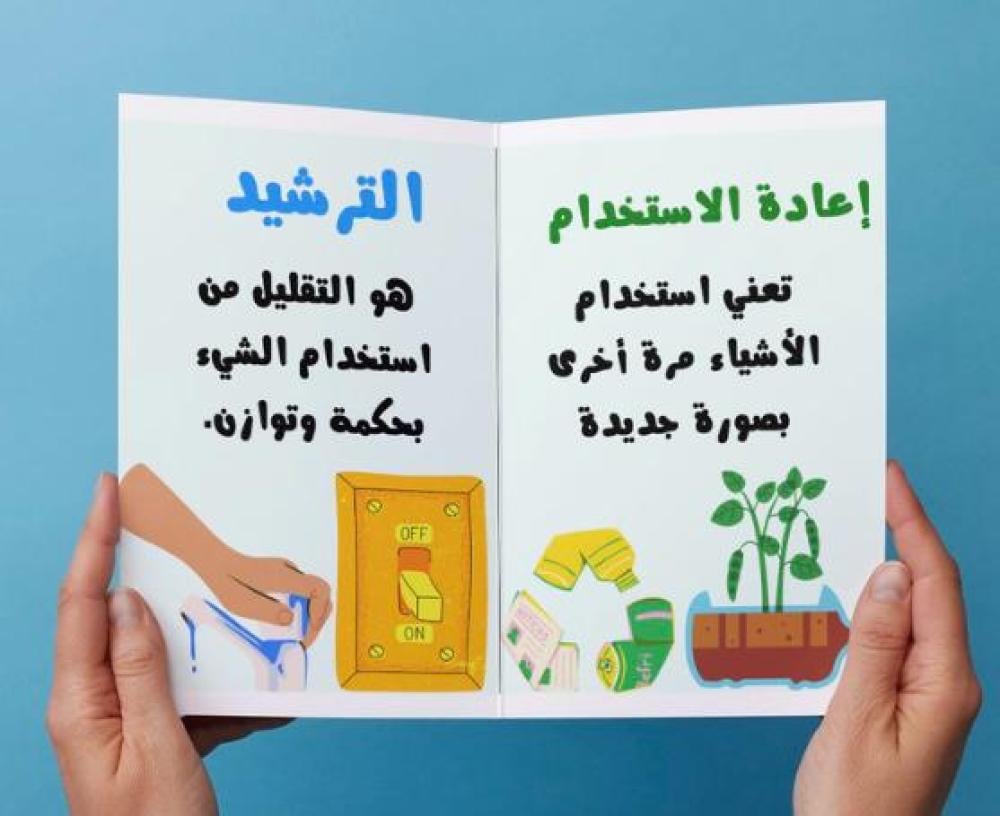 إعادة الاستخدام
تعني استخدام
الأشياء مرة أخرى
بصورة جديدة
الترشيد
هو التقليل من
استخدام الشيء
بحكمة وتوازن.
OFF
ON